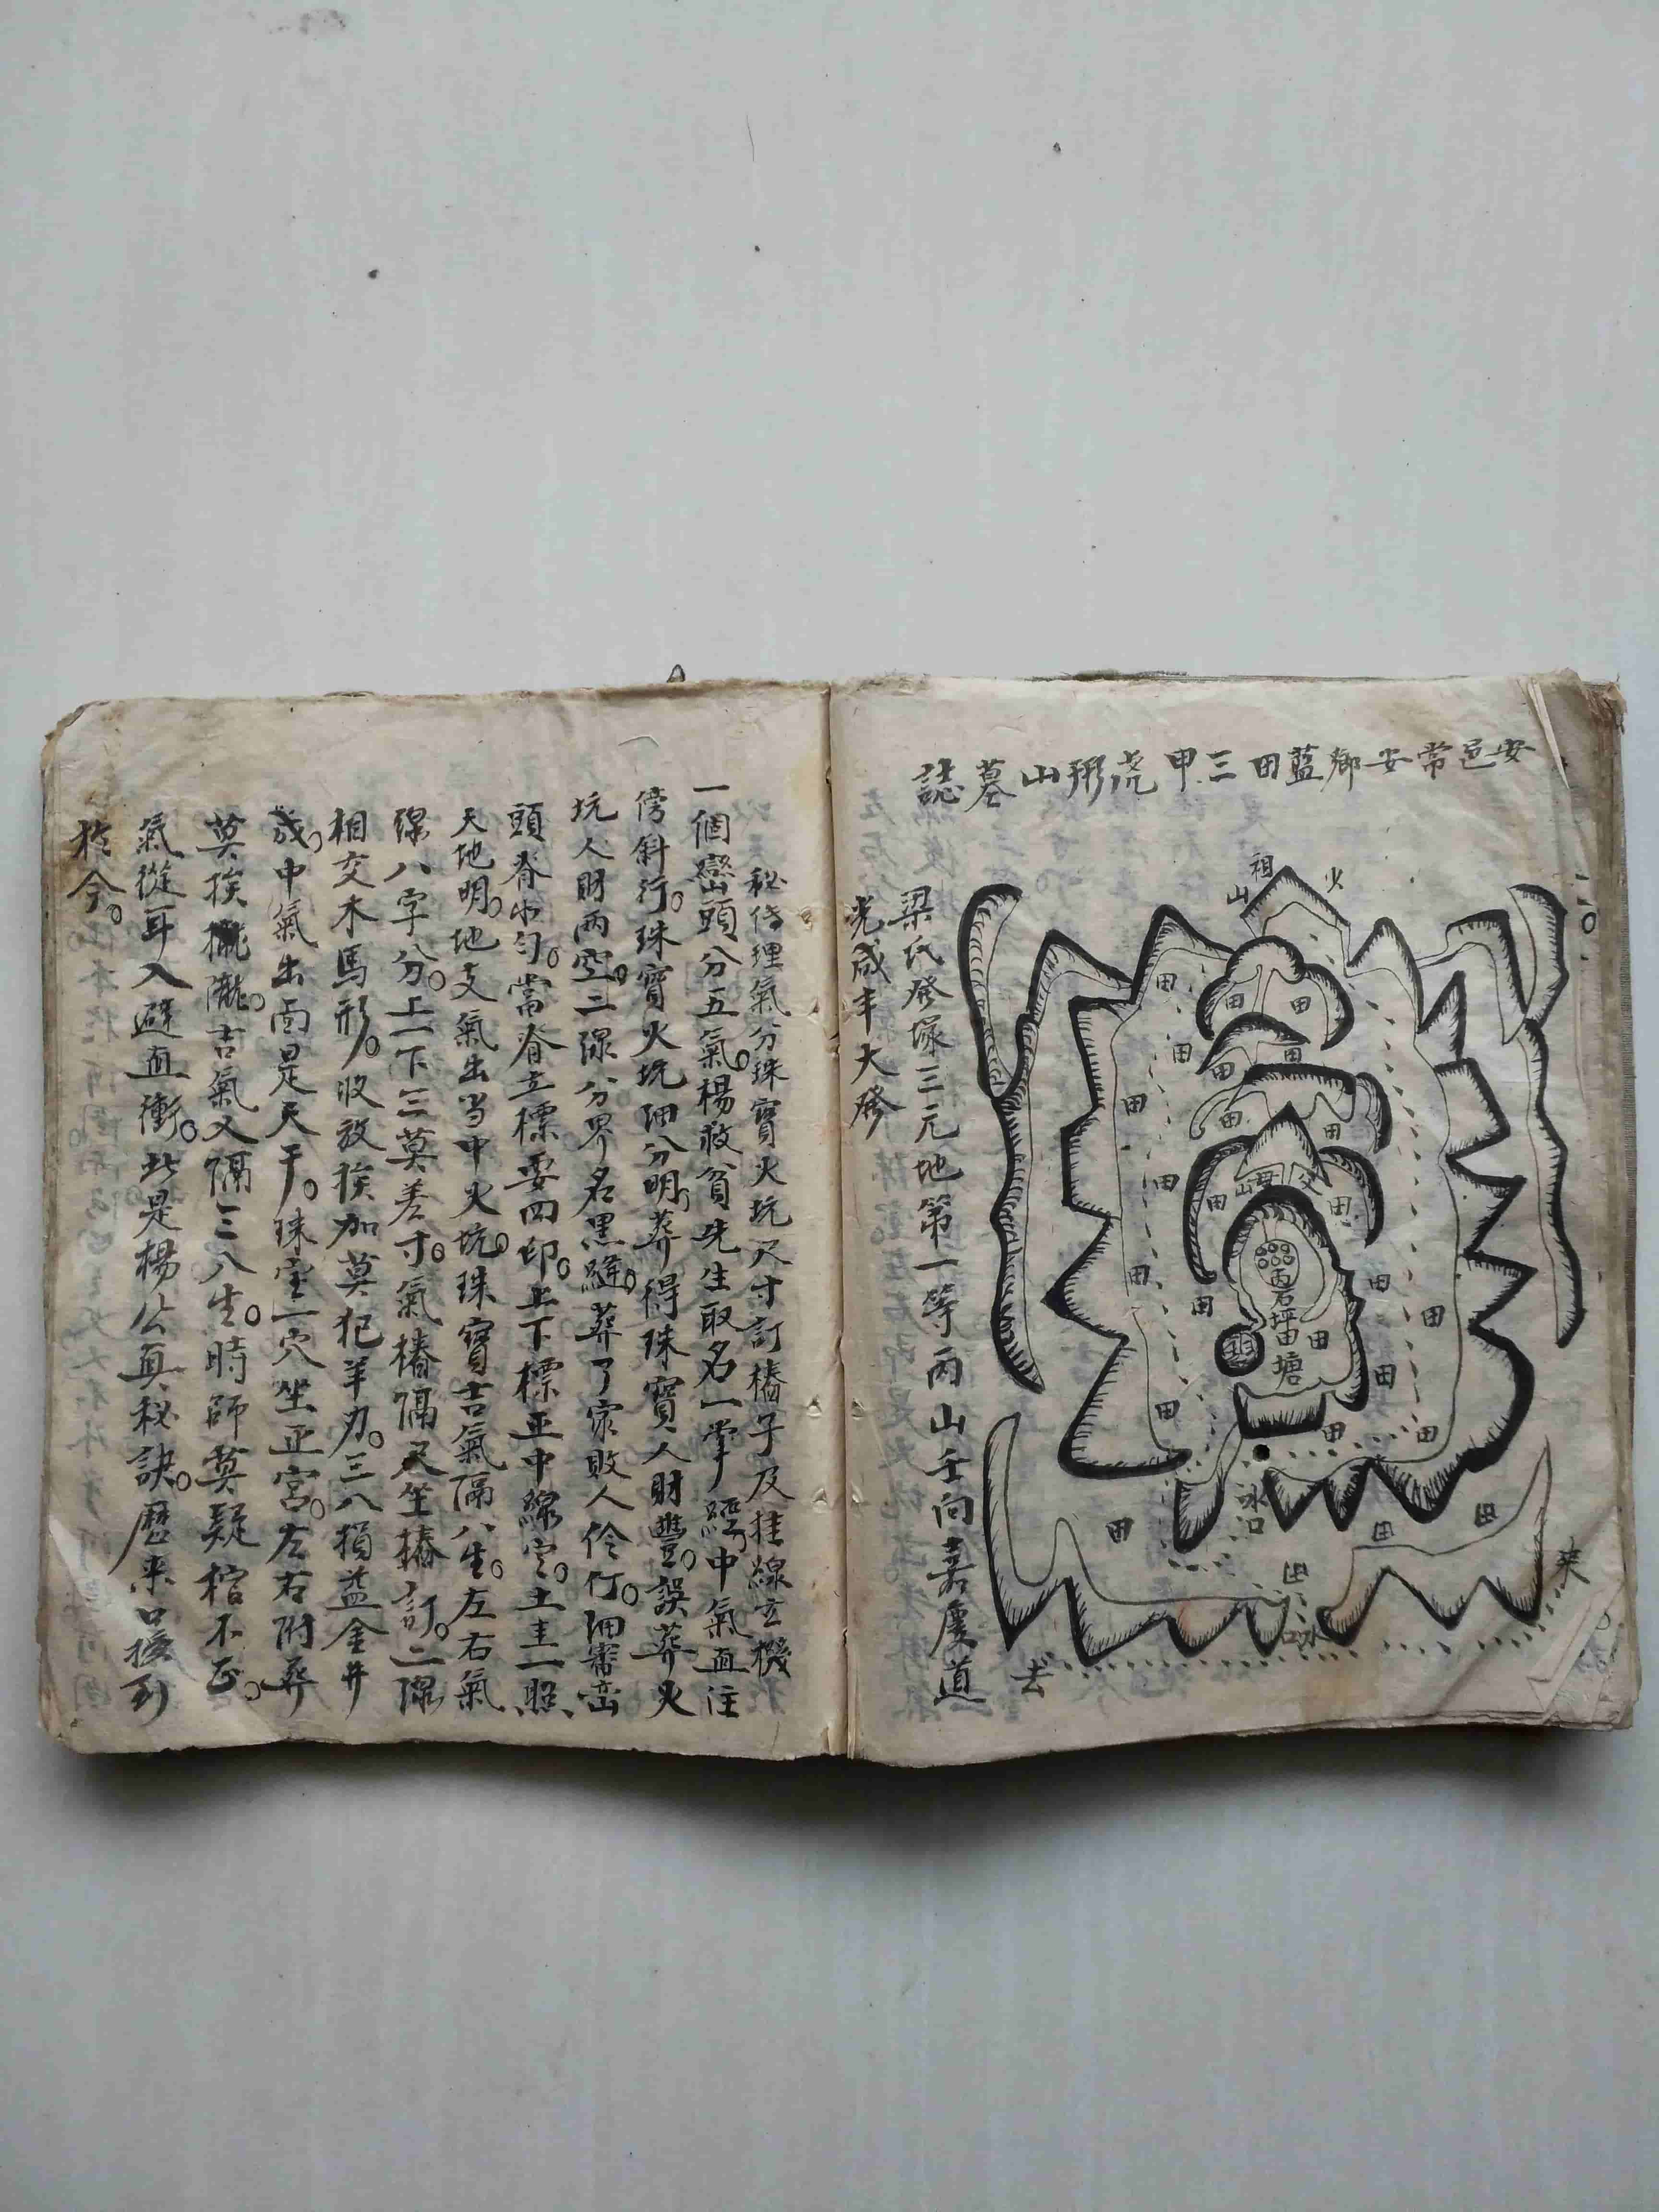 安邑常安鄉藍田三甲虎形山墓誌
祖山
火
父母山
雷坪塘
田
田
田
田
田
田
田
田
田
田
田
田
田
田
田
田
田
田
田
田
水口
水口
來
去
梁氏發塚三元地第一等丙山壬向嘉慶道
光咸丰大發
秘传理氣分珠寶火坑尺寸訂樁子及挂線玄機
一個巒頭分五氣楊救貧先生取名一掌經中氣直注
傍斜行珠寶火坑細分明葬得珠寶人財豐誤葬火
坑人財兩空二線分界名黑縫葬了家敗人伶仃細審巒
頭脊水勻當脊立標要四印上下標正中線定土圭一照
天地明地支氣出当中火坑珠寶吉氣隔八生左右氣
線八字分上一下三莫差寸氣樁隔尺坐樁訂二線
相交木馬形收放挨加莫犯羊刃三八損益金井
成中氣出面是天干珠宝一穴坐正宮左右附葬
莫挨攏吉氣又隔三八生時師莫疑棺不正
氣從耳入避直衝此是楊公真秘訣歷來口授到
於今